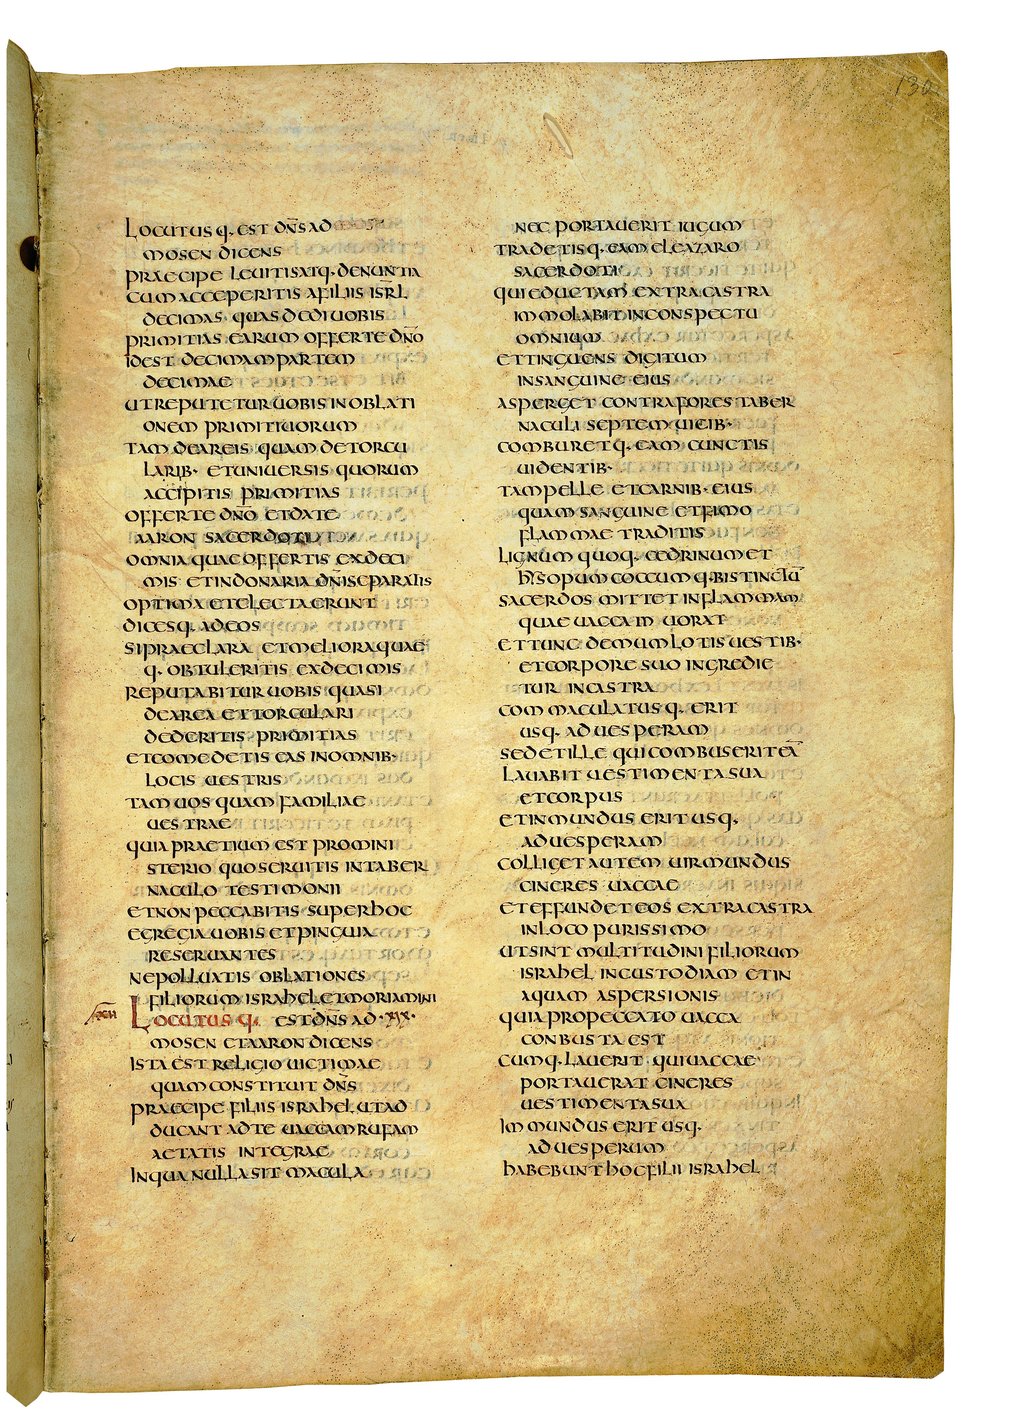 130
LOCUTUS Q· EST DN̅S AD
MOSEN DICENS
PRAECIPE LEUITIS ATQ· DENUNTIA
CUM ACCEPERITIS A FILIIS ISRL̅
DECIMAS QUAS DEDI UOBIS
PRIMITIAS EARUM OFFERTE DN̅O
IDEST DECIMAM PARTEM
DECIMAE
UT REPUTETUR UOBIS IN OBLATI
ONEM PRIMITIUORUM
TAM DE AREIS QUAM DE TORCU
LARIB· ET UNIUERSIS QUORUM
ACCIPITIS PRIMITIAS
OFFERTE DN̅O ET DATE
AARON SACERDOTI
OMNIA QUAE OFFERTIS EX DECI
MIS ET IN DONARIA DN̅I SEPARATIS
OPTIMA ET ELECTA ERUNT
DICESQ· AD EOS
SI PRAECLARA ET MELIORA QUAE
Q· OBTULERITIS EX DECIMIS
REPUTABITUR UOBIS QUASI
DE AREA ET TORCULARI
DEDERITIS PRIMITIAS
ET COMEDETIS EAS IN OMNIB·
LOCIS UESTRIS
TAM UOS QUAM FAMILIAE
UESTRAE
QUIA PRAETIUM EST PRO MINI
STERIO QUO SERUITIS IN TABER
NACULO TESTIMONII
ET NON PECCABITIS SUPER HOC
EGREGIA UOBIS ET PINGUIA
RESERUANTES
NE POLLUATIS OBLATIONES
FILIORUM ISRAHEL ET MORIAMINI
LOCUTUS Q· EST DN̅S AD ·XIX·
MOSEN ET AARON DICENS
ISTA EST RELIGIO UICTIMAE
QUAM CONSTITUIT DN̅S
PRAECIPE FILIIS ISRAHEL UT AD
DUCANT AD TE UACCAM RUFAM
AETATIS INTEGRAE
IN QUA NULLA SIT MACULA
NEC PORTAUERIT IUGUM
TRADETISQ· EAM ELEAZARO
SACERDOTI
QUI EDUCTAM EXTRA CASTRA
IMMOLABIT IN CONSPECTU
OMNIUM
ET TINGUENS DIGITUM
IN SANGUINE EIUS
ASPERGET CONTRA FORES TABER
NACULI SEPTEM UICIB·
COMBURETQ· EAM CUNCTIS
UIDENTIB·
TAM PELLE ET CARNIB· EIUS
QUAM SANGUINE ET FIMO
FLAMMAE TRADITIS
LIGNUM QUOQ· CEDRINUM ET
HYSOPUM COCCUMQ· BIS TINCTU̅
SACERDOS MITTET IN FLAMMAM
QUAE UACCAM UORAT
ET TUNC DEMUM LOTIS UESTIB·
ET CORPORE SUO INGREDIE
TUR IN CASTRA
COMMACULATUSQ· ERIT
USQ· AD UESPERAM
SED ET ILLE QUI COMBUSERIT EA̅
LAUABIT UESTIMENTA SUA
ET CORPUS
ET INMUNDUS ERIT USQ·
AD UESPERAM
COLLIGET AUTEM UIR MUNDUS
CINERES UACCAE
ET EFFUNDET EOS EXTRA CASTRA
IN LOCO PURISSIMO
UT SINT MULTITUDINI FILIORUM
ISRAHEL IN CUSTODIAM ET IN
AQUAM ASPERSIONIS
QUIA PRO PECCATO UACCA
CONBUSTA EST
CUMQ· LAUERIT QUI UACCAE
PORTAUERAT CINERES
UESTIMENTA SUA
IMMUNDUS ERIT USQ·
AD UESPERUM
HABEBUNT HOC FILII ISRAHEL